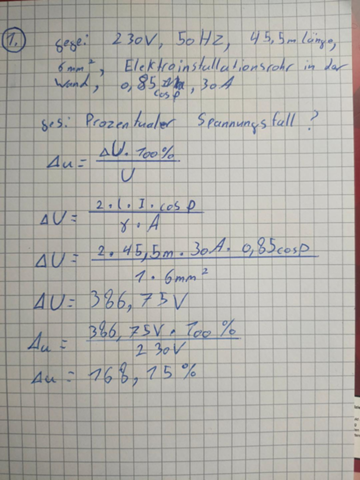 1. gege: 230V, 50Hz, 45,5m Länge,
6mm², Elektroinstallationsrohr in der
Wand, 0,85 cosφ, 30A
ges: Prozentualer Spannungsfall?
Δu = ΔU · 100% / U
ΔU = 2 · l · I · cosφ / γ · A
ΔU = 2 · 45,5m · 30A · 0,85cosφ / 1 · 6mm²
ΔU = 386,75V
Δu = 386,75V · 100% / 230V
Δu = 168,15%